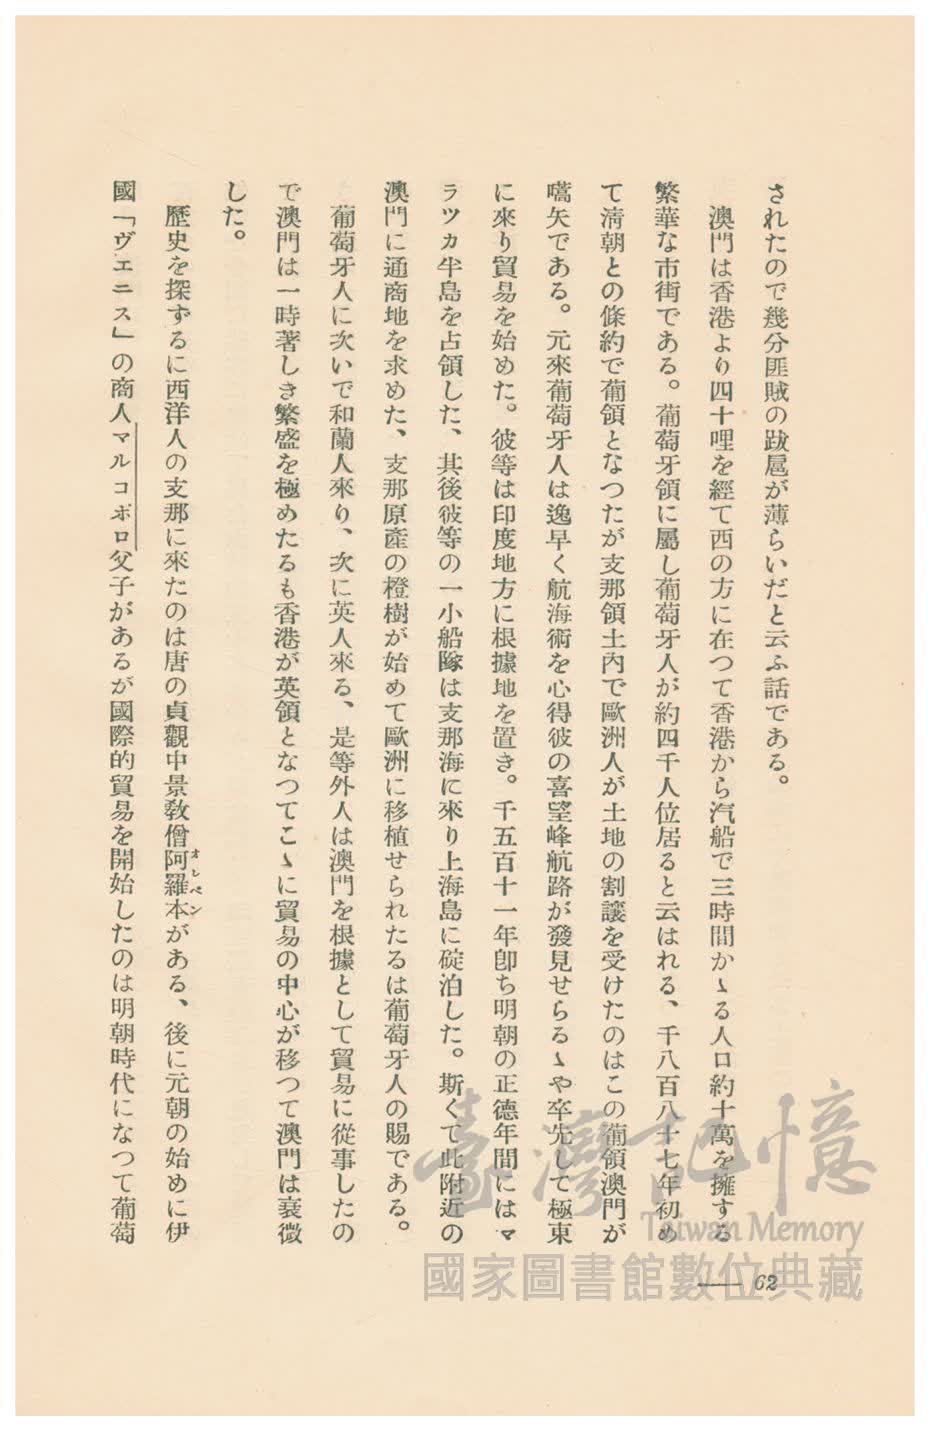 されたので幾分匪賊の跋扈が薄らいだと云ふ話である。
澳門は香港より四十哩を經て西の方に在つて香港から汽船で三時間かゝる人口約十萬を擁する
繁華な市街である。葡萄牙領に屬し葡萄牙人が約四千人位居ると云はれる、千八百八十七年初め
て淸朝との條約で葡領となつたが支那領土內で歐洲人が土地の割讓を受けたのはこの葡領澳門が
嚆矢である。元來葡萄牙人は逸早く航海術を心得彼の喜望峰航路が發見せらるゝや卒先して極東
に來り貿易を始めた。彼等は印度地方に根據地を置き。千五百十一年卽ち明朝の正德年間にはマ
ラツカ半島を占領した、其後彼等の一小船隊は支那海に來り上海島に碇泊した。斯くて此附近の
澳門に通商地を求めた、支那原產の橙樹が始めて歐洲に移植せられたるは葡萄牙人の賜である。
葡萄牙人に次いで和蘭人來り、次に英人來る、是等外人は澳門を根據として貿易に從事したの
で澳門は一時著しき繁盛を極めたるも香港が英領となつてこゝに貿易の中心が移つて澳門は衰微
した。
歷史を探ずるに西洋人の支那に來たのは唐の貞觀中景敎僧阿羅本がある、後に元朝の始めに伊
オレペン
國「ヴエニス」の商人マルコポロ父子があるが國際的貿易を開始したのは明朝時代になつて葡萄
62
臺灣記憶
Taiwan Memory
國家圖書館數位典藏